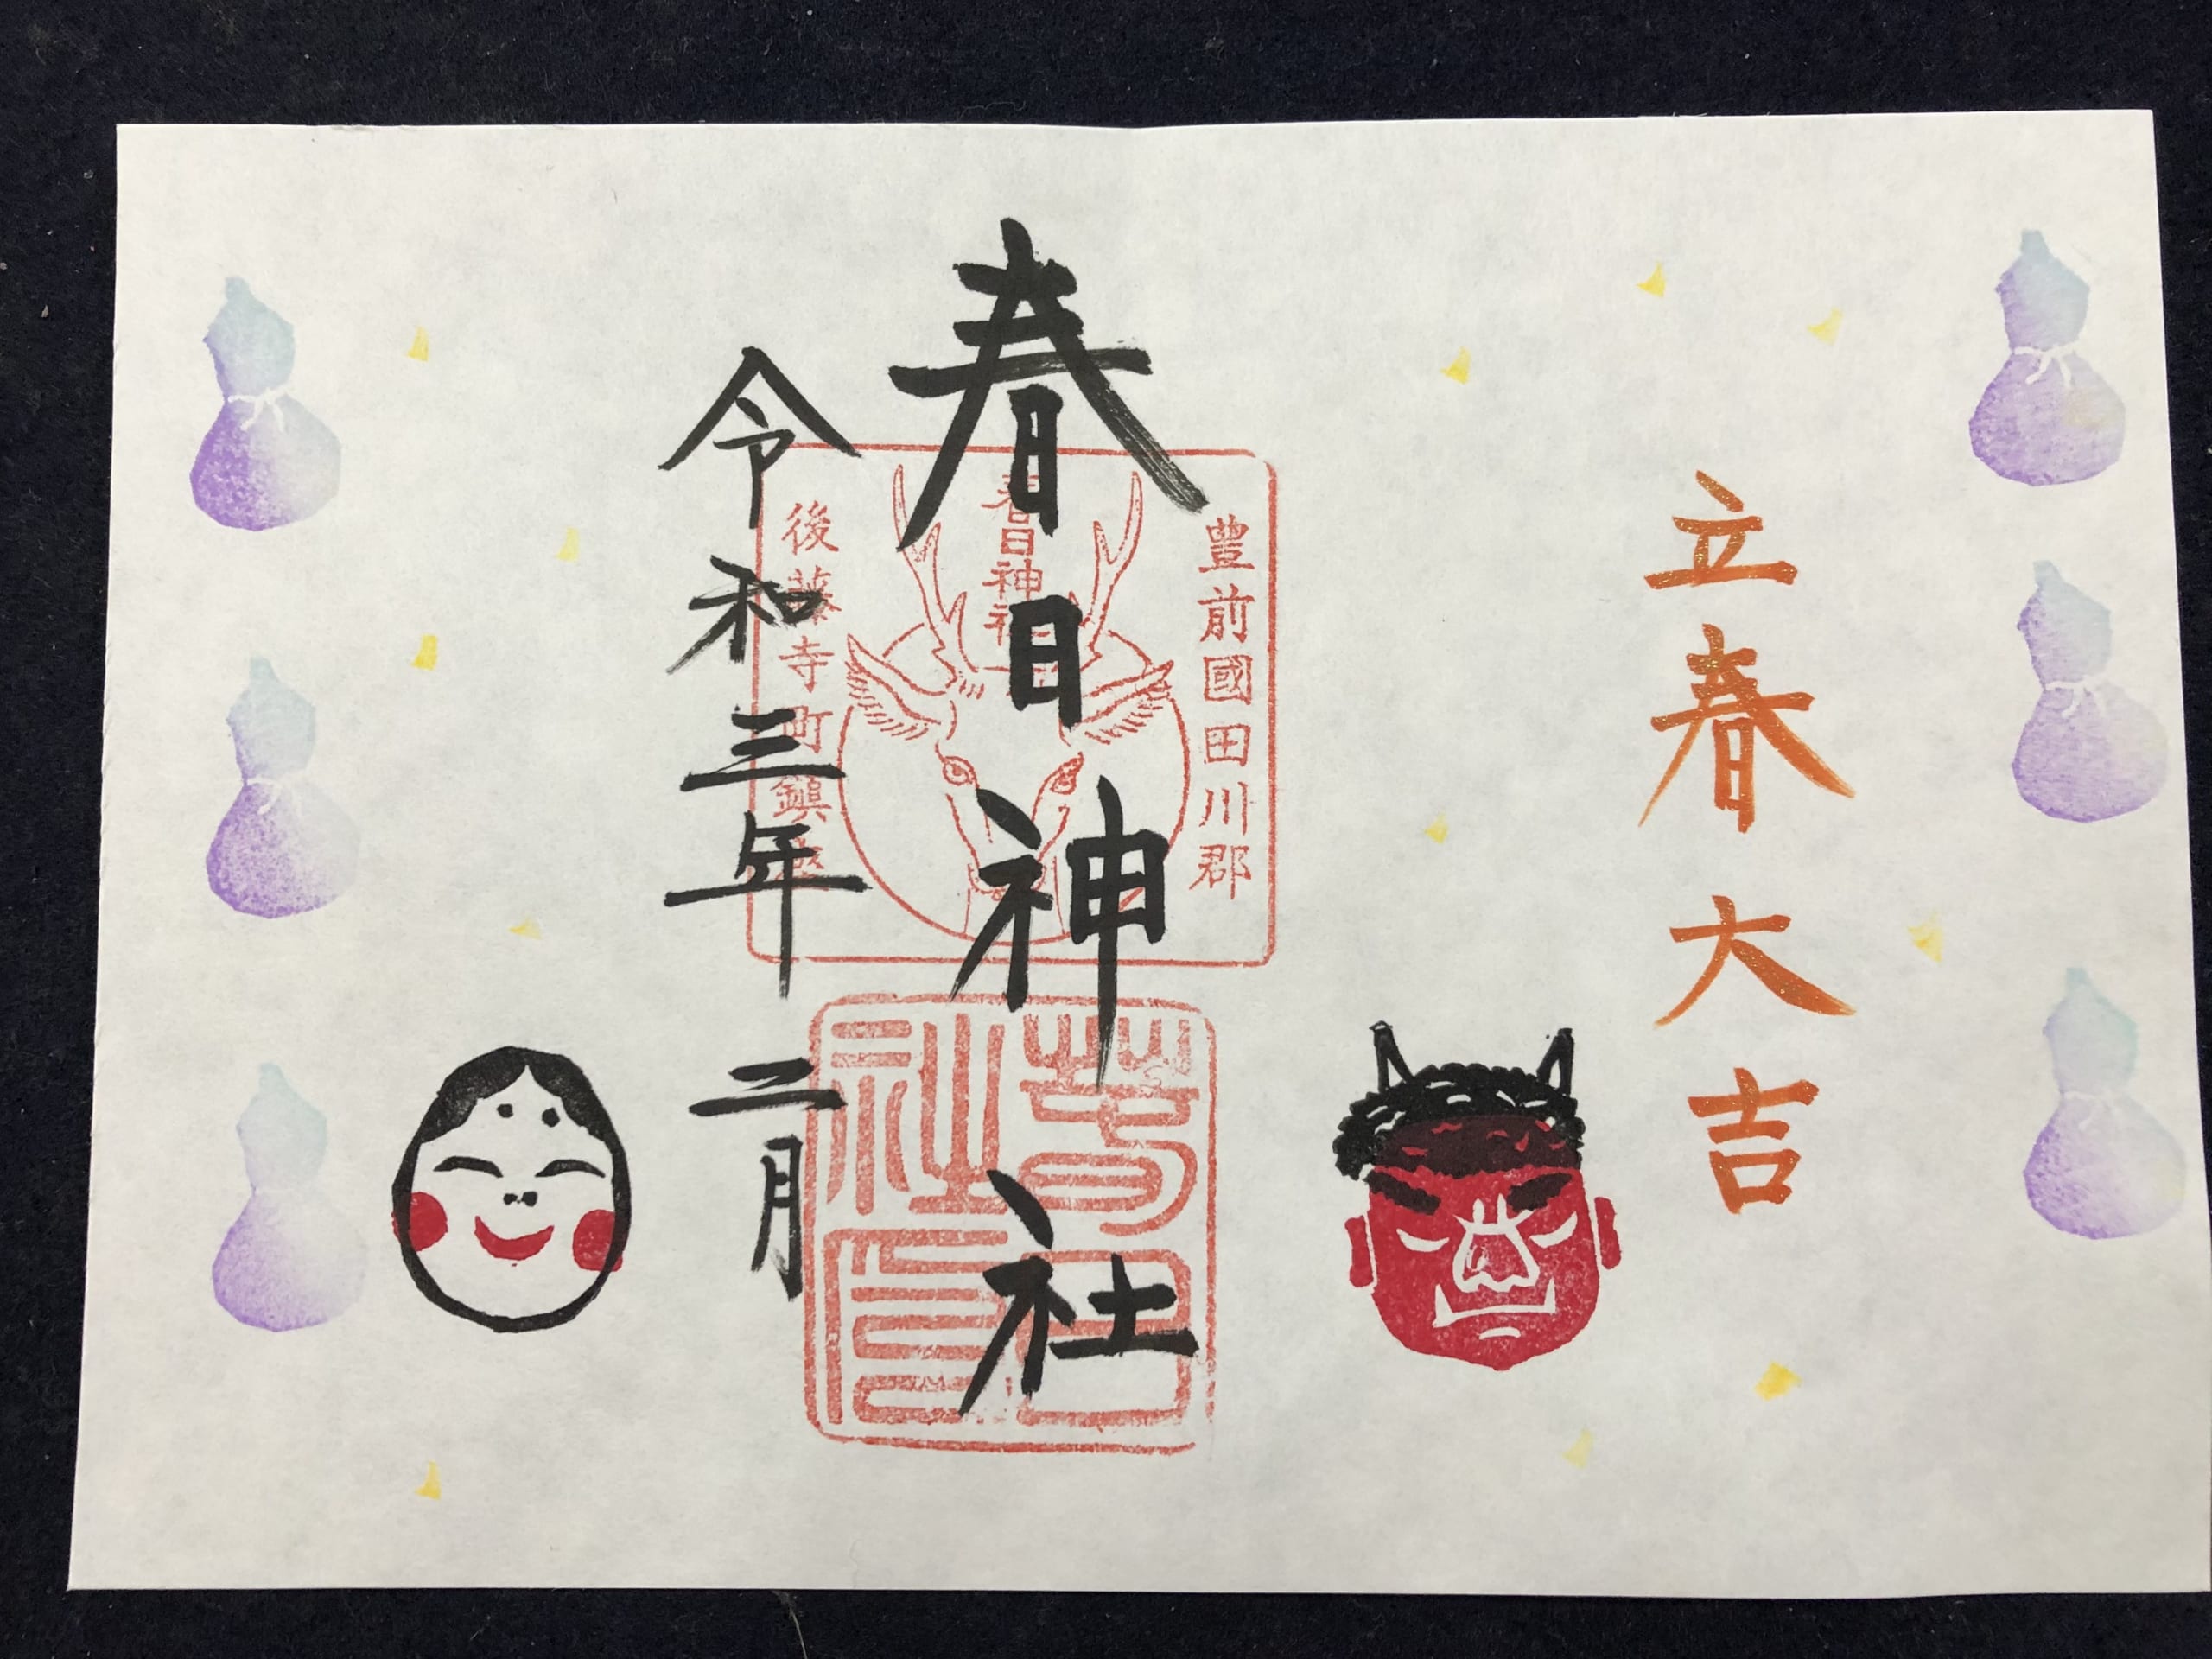 立春大吉
豊前國田川郡
春日神社
春日神社
後藤寺町鎮座
令和三年二月
春日社印